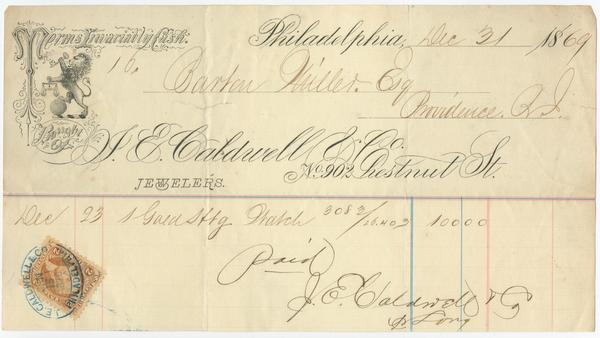 Terms Invariably Cash.
Philadelphia, Dec 31 1869
Barton Miller. Esq
Providence. R.I.
Bought of
J. E. Caldwell & Co.
JEWELERS.
No. 902 Chestnut St.
Dec 23 1 Gold Watch 100 00
Paid
J. E. Caldwell & Co
J. E. CALDWELL & CO.
PHILADELPHIA